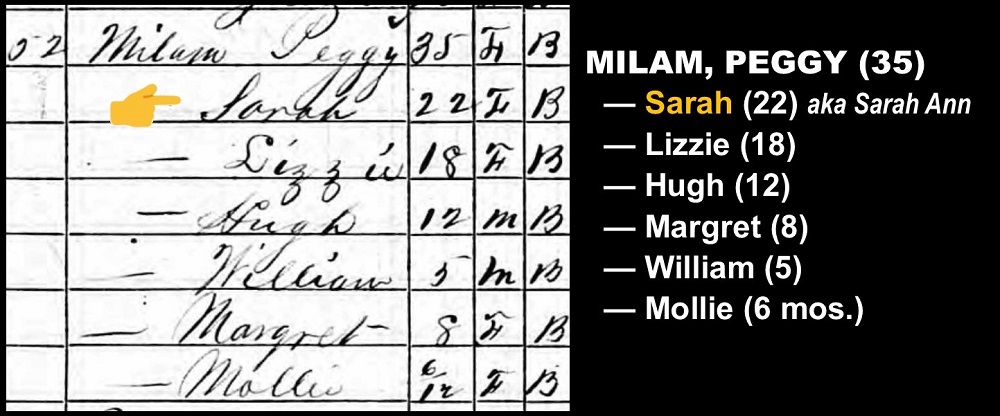 52 Milam Peggy 35 F B
Sarah 22 F B
— Lizzie 18 F B
— Hugh 12 m B
— William 5 m B
— Margret 8 F B
— Mollie 6/12 F B
MILAM, PEGGY (35)
— Sarah (22) aka Sarah Ann
— Lizzie (18)
— Hugh (12)
— Margret (8)
— William (5)
— Mollie (6 mos.)